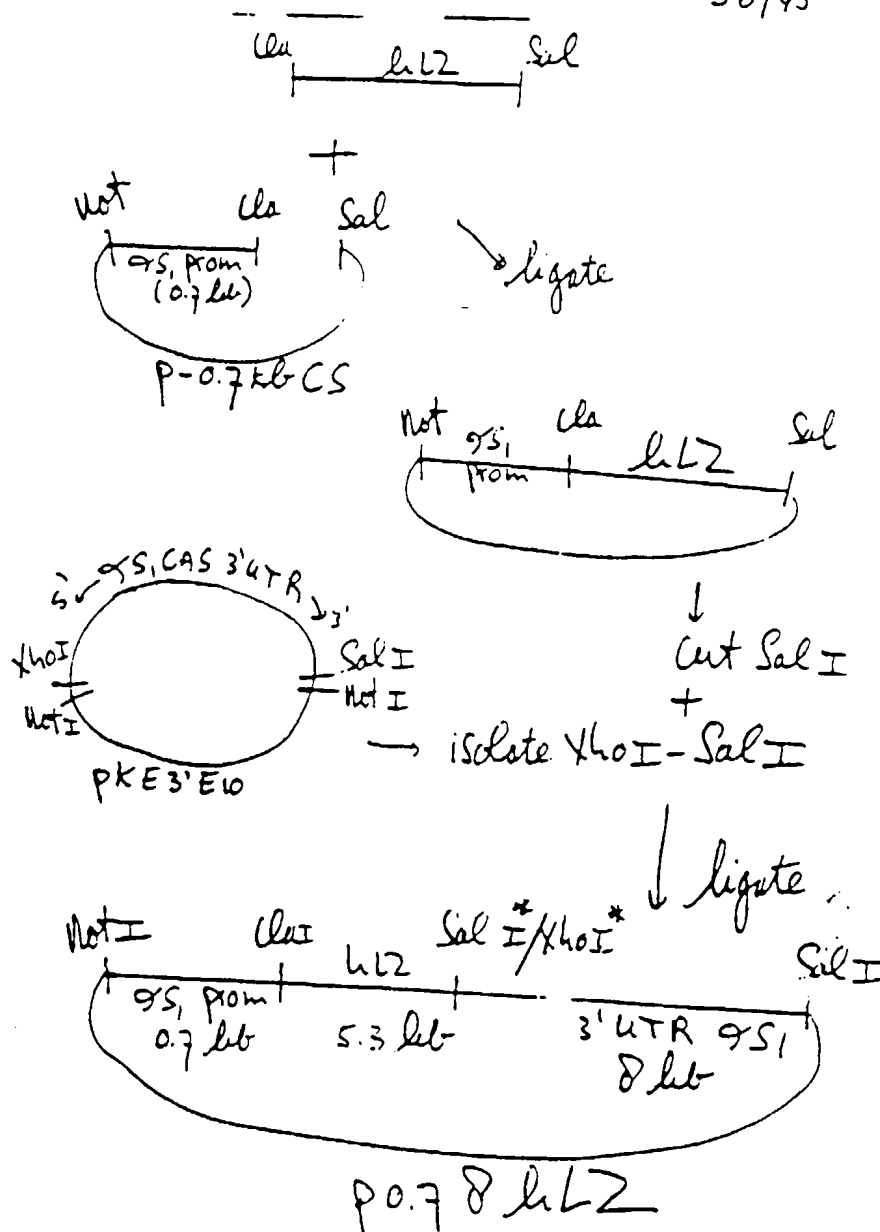 Cla hLZ Sal
+
Not Cla Sal
αS₁ prom
(0.7 kb)
ligate
p-0.7kb CS
Not αS₁ Cla hLZ Sal
prom
5' αS₁ CAS 3'UTR 3'
XhoI Sal I
Not I Not I
pKE3'E10
Cut Sal I
+
→ isolate XhoI-Sal I
ligate
Not I ClaI Sal I*/XhoI* Sal I
αS₁ prom hLZ
0.7 kb 5.3 kb 3' UTR αS₁
8 kb
p0.7 8 hLZ